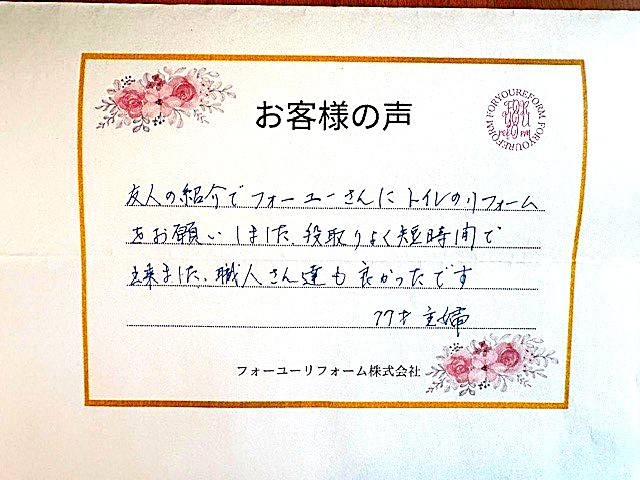 お客様の声
FORYOUREFORM FORYOUREFORM
友人の紹介でフォーユーさんにトイレのリフォーム
をお願いしました 段取りよく短時間で
出来ました、職人さん達も良かったです
77才 主婦
フォーユーリフォーム株式会社